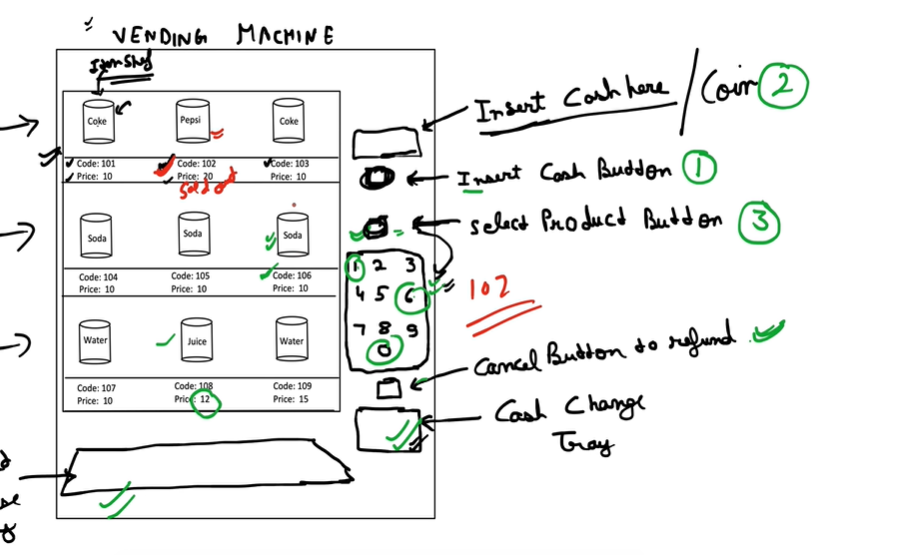 VENDING MACHINE
Item Shelf
Coke
Pepsi
Coke
Code: 101
Price: 10
Code: 102
Price: 20
Sold out
Code: 103
Price: 10
Soda
Soda
Soda
Code: 104
Price: 10
Code: 105
Price: 10
Code: 106
Price: 10
Water
Juice
Water
Code: 107
Price: 10
Code: 108
Price: 12
Code: 109
Price: 15
Insert Cash here / Coin 2
Insert Cash Button 1
Select Product Button 3
1 2 3
4 5 6
7 8 9
0
102
Cancel Button to refund
Cash Change
Tray